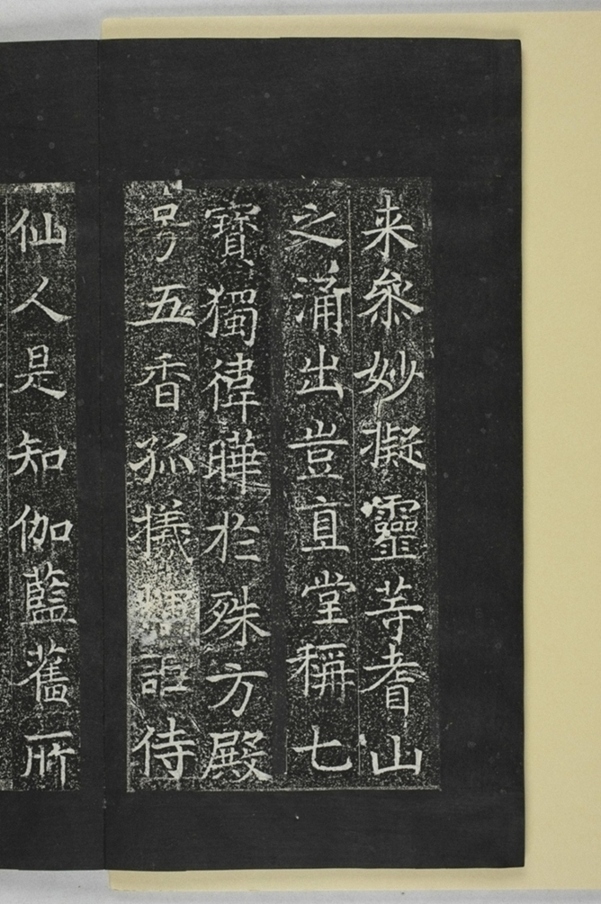 来叅妙擬靈䓁耆山
之涌出豈直堂稱七
寶獨徫曄於殊方殿
号五香孤㩘詎侍
仙人是知伽藍舊所